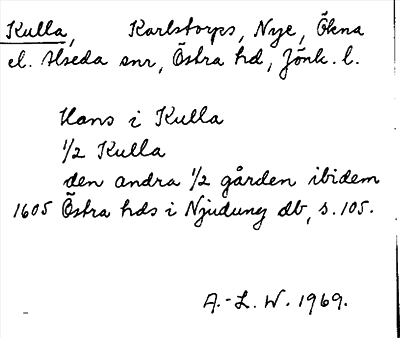 Kulla, Karlstorps, Nye, Ökna
el. Alseda snr, Östra hd, Jönk. l.
Hans i Kulla
1/2 Kulla
den andra 1/2 gården ibidem
1605 Östra hds i Njudung db, s. 105.
A.-L. W. 1969.